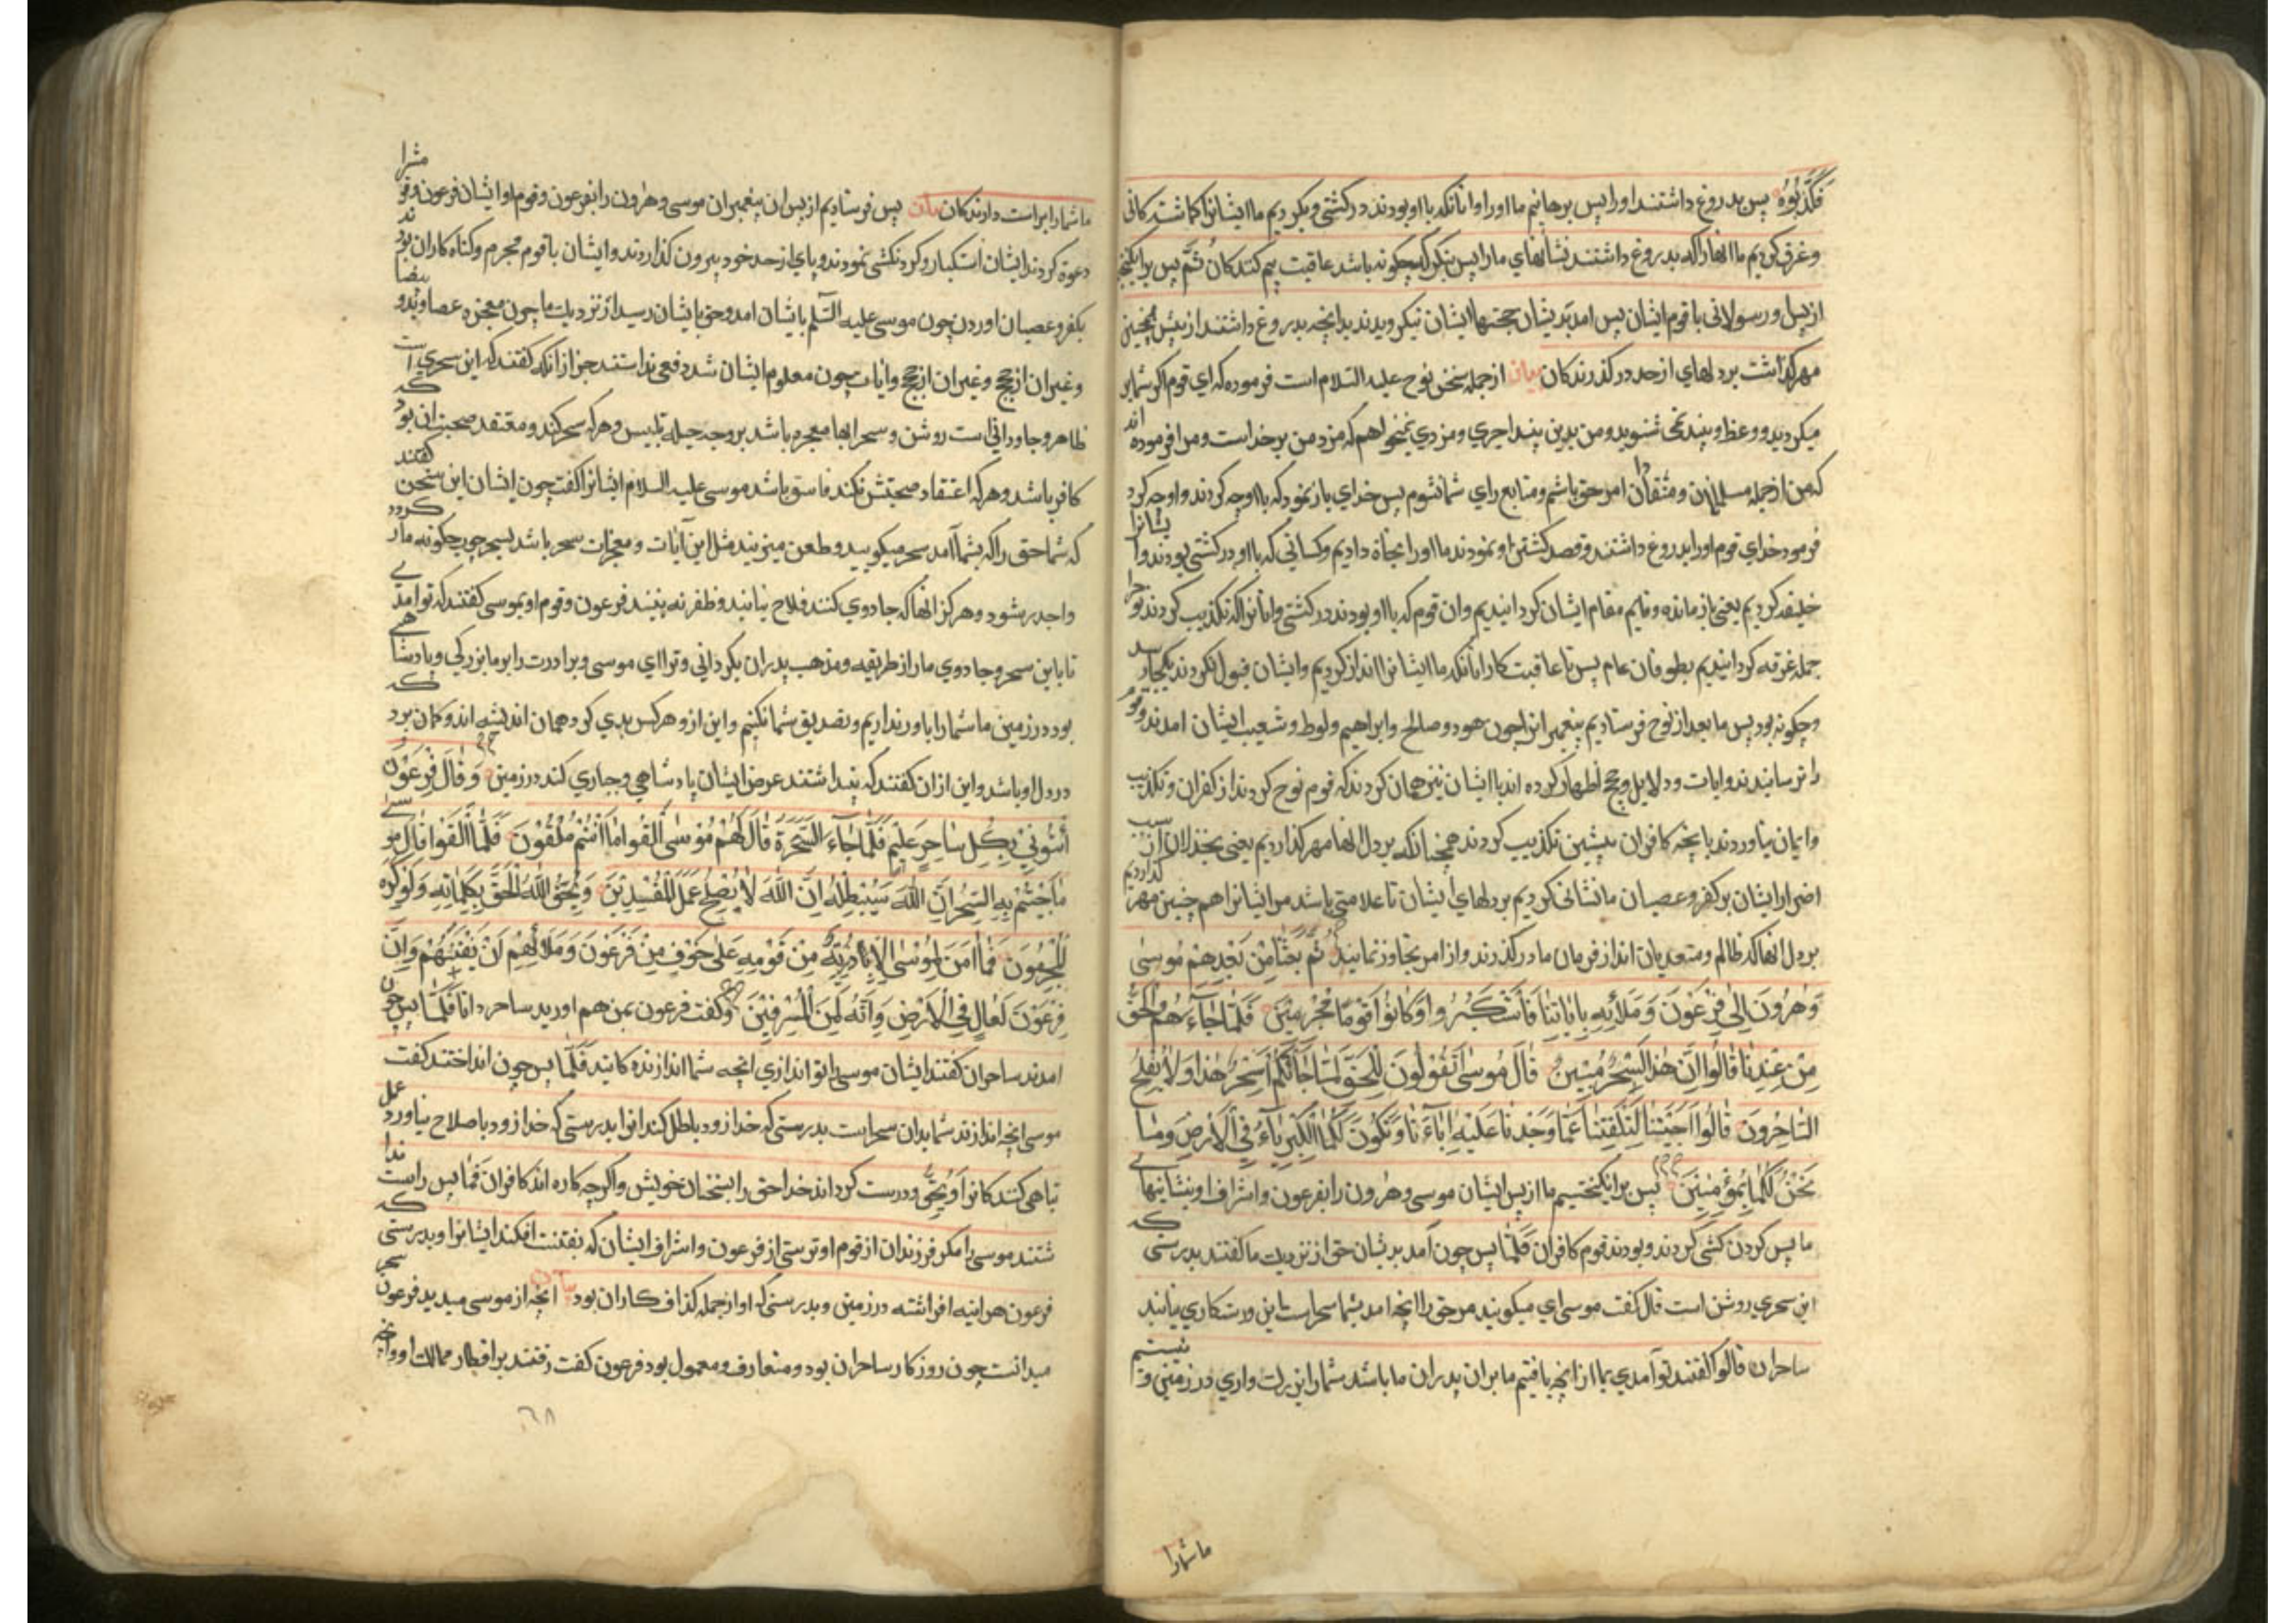 فَكَذَّبُوهُ پس بدروغ داشتند اورا پس برهانیم ما اورا و انانکه با او بودند در کشتی و بکردیم ما ایشانرا کماشتکانی
و غرق کردیم ما انها را که بدروغ داشتند نشانهای مارا پس بنکر که چکونه باشد عاقبت بیم کنندکان ثُمَّ پس برانکیختیم
از پس او رسولانی با قوم ایشان پس امد بدیشان حجتها ایشان نیکرویدند بدانچه بدروغ داشتند از پیش همچنین
مهر کذاشت بر دلهای از حد درکذرندکان بیان از جمله سخن نوح علیه السلام است فرموده که ای قوم اکر شما بر
میکردید و وعظ و پند نمی شنوید و من بدین پند اجری و مزدی نمیخواهم که مزد من بر خداست و مرا فرموده اند
که من از جمله مسلمانان و منقادان امر حق باشم و متابع رای شما نشوم پس خدای باز نمود که با او چه کردند و او چه کرد
فرمود خدای قوم اورا بدروغ داشتند و قصد کشتن او نمودند ما اورا نجاة دادیم و کسانی که با او در کشتی بودند و ایشانرا
خلیفه کردیم یعنی باز مانده و قایم مقام ایشان کردانیدیم و ان قوم که با او بودند در کشتی و انانرا که تکذیب کردند نوح را
جمله غرقه کردانیدیم بطوفان عام پس تا عاقبت کار انانکه ما ایشانرا انذار کردیم و ایشان قبول نکردند بکجا رسید
و چکونه بود پس ما بعد از نوح فرستادیم پیغمبرانرا چون هود و صالح و ابراهیم و لوط و شعیب ایشان امدند و قوم
را ترسانیدند و ایات و دلایل و حجج اظهار کرده اند با ایشان نیز همان کردند که قوم نوح کردند از کفران و تکذیب
و ایمان نیاوردند بانچه کافران پیشین تکذیب کردند همچنانکه بر دل انها مهر کذاردیم یعنی بخذلان از سبب
اضرار ایشان بر کفر و عصیان ما نشانی کردیم بر دلهای ایشان تا علامتی باشد مر ایشانرا هم چنین مهر کذاردیم
بر دل انها که ظالم و متعدیان اند از فرمان ما درکذرند و از امر تجاوز نمایند ثُمَّ بَعَثْنَا مِنْ بَعْدِهِمْ مُوسٰی
وَهٰرُونَ اِلٰی فِرْعَوْنَ وَمَلَائِهِ بِاٰیَاتِنَا فَاسْتَكْبَرُوا وَكَانُوا قَوْمًا مُجْرِمِیْنَ فَلَمَّا جَاءَهُمُ الْحَقُّ
مِنْ عِنْدِنَا قَالُوا اِنَّ هٰذَا لَسِحْرٌ مُبِیْنٌ قَالَ مُوسٰی اَتَقُولُونَ لِلْحَقِّ لَمَّا جَاءَكُمْ اَسِحْرٌ هٰذَا وَلَا یُفْلِحُ
السَّاحِرُونَ قَالُوا اَجِئْتَنَا لِتَلْفِتَنَا عَمَّا وَجَدْنَا عَلَیْهِ اٰبَاءَنَا وَتَكُونَ لَكُمَا الْكِبْرِیَاءُ فِی الْاَرْضِ وَمَا
نَحْنُ لَكُمَا بِمُؤْمِنِیْنَ پس برانکیختیم ما از پس ایشان موسی و هٰرون را بفرعون و اشراف او بنشانیهای
ما پس کردن کشی کردند و بودند قوم کافران فَلَمَّا پس چون آمد بدیشان حق از نزدیك ما کفتند بدرستی که
این سحری روشن است قال کفت موسی ای میکویند مر حق را انچه امد بشما سحراست این و رستکاری نیابند
ساحران قالوا کفتند تو آمدی بما از انچه یافتیم ما بران پدران ما باشد شما را بزرك واری در زمین و نیستیم
ما شمارا
ما شمارا براست دارندکان بیان پس فرستادیم از پس ان پیغمبران موسی و هٰرون را بفرعون و قوم او ایشان فرعون و قومش را
دعوة کردند ایشان استکبار و کردنکشی نمودند و پای از حد خود بیرون کذاردند و ایشان با قوم مجرم و کناه کاران بودند
بکفر و عصیان اوردن چون موسی علیه السّلم بایشان امد و حق بایشان رسید از نزدیك ما چون معجزه عصا و ید و بیضا
و غیر ان از حجج و غیر ان از حجج و ایات چون معلوم ایشان شد دفعی نداستند جز از انکه کفتند که این سحری است
ظاهر و جاودانی است روشن و سحر انها معجزه باشد بر وجه حیله تلبیس و هر که سحر کند و معتقد صحبت ان بود که
کافر باشد و هر که اعتقاد صحتش نکند فاسق باشد موسی علیه السلام ایشانرا کفت چون ایشان این سخن کفتند
که شما حق را که بشما آمد سحر میکویید و طعن میزنید مثل این آیات و معجزات سحر باشد بسحر جی چکونه مار کردد
واجدر بشود و هرکز انها که جادوی کنند فلاح نیابند و ظفر نه بینند فرعون و قوم او بموسی کفتند که تو امدی
تا باین سحر و جادوی مارا از طریقه و مذهب پدران بکردانی و ترا ای موسی و برادرت را بر ما بزرکی و پادشاهی
بود در زمین ما شمارا باور نداریم و تصدیق شما نکنیم و این از و هر کس بدی کرد همان اندیشه اند و کمان برد که
در دل او باشد و این از ان کفتند که پنداشتند عرض ایشان پادشاهی و جباری کند در زمین وَقَالَ فِرْعَوْنُ
أَئْتُونِیْ بِكُلِّ سَاحِرٍ عَلِیْمٍ فَلَمَّا جَاءَ السَّحَرَةُ قَالَ لَهُمْ مُوسٰی أَلْقُوا مَا أَنْتُمْ مُلْقُوْنَ فَلَمَّا أَلْقَوْا قَالَ مُوسٰی
مَا جِئْتُمْ بِهِ السِّحْرُ اِنَّ اللّٰهَ سَیُبْطِلُهُ اِنَّ اللّٰهَ لَا یُصْلِحُ عَمَلَ الْمُفْسِدِیْنَ وَیُحِقُّ اللّٰهُ الْحَقَّ بِكَلِمَاتِهِ وَلَوْ كَرِهَ
الْمُجْرِمُونَ فَمَا اٰمَنَ لِمُوسٰی اِلَّا ذُرِّیَّةٌ مِنْ قَوْمِهِ عَلٰی خَوْفٍ مِنْ فِرْعَوْنَ وَمَلَائِهِمْ اَنْ یَفْتِنَهُمْ وَاِنَّ
فِرْعَوْنَ لَعَالٍ فِی الْاَرْضِ وَاِنَّهُ لَمِنَ الْمُسْرِفِیْنَ و کفت فرعون بمن هم اورید ساحر دانا فَلَمَّا پس چون
امدند ساحران کفتند ایشان موسی را تو اندازی انچه شما اندازنده کانید فَلَمَّا پس چون انداختند کفت
موسی انچه اندازند شما بدان سحراست بدرستی که خدا زود باطل کند انرا بدرستی که خدا زود باصلاح نیاورد عمل
تباهی کنند کانرا وَیُحِقُّ و درست کرداند خدا حق را بسخنان خویش و اکر چه کاره اند کافران فَمَا پس راست ندا
شتند موسی را مکر فرزندان از قوم او ترستی از فرعون و اشراف ایشان که بفتنت افکند ایشانرا و بدرستی که
فرعون هراینه افراشته در زمین و بدرستی که او از جمله کذاف کاران بود بیان انچه از موسی میدید فرعون سحر
میدانست چون روزکار ساحران بود و متعارف و معمول بود فرعون کفت رفتند بر اقطار ممالك او و انچه
۶۸